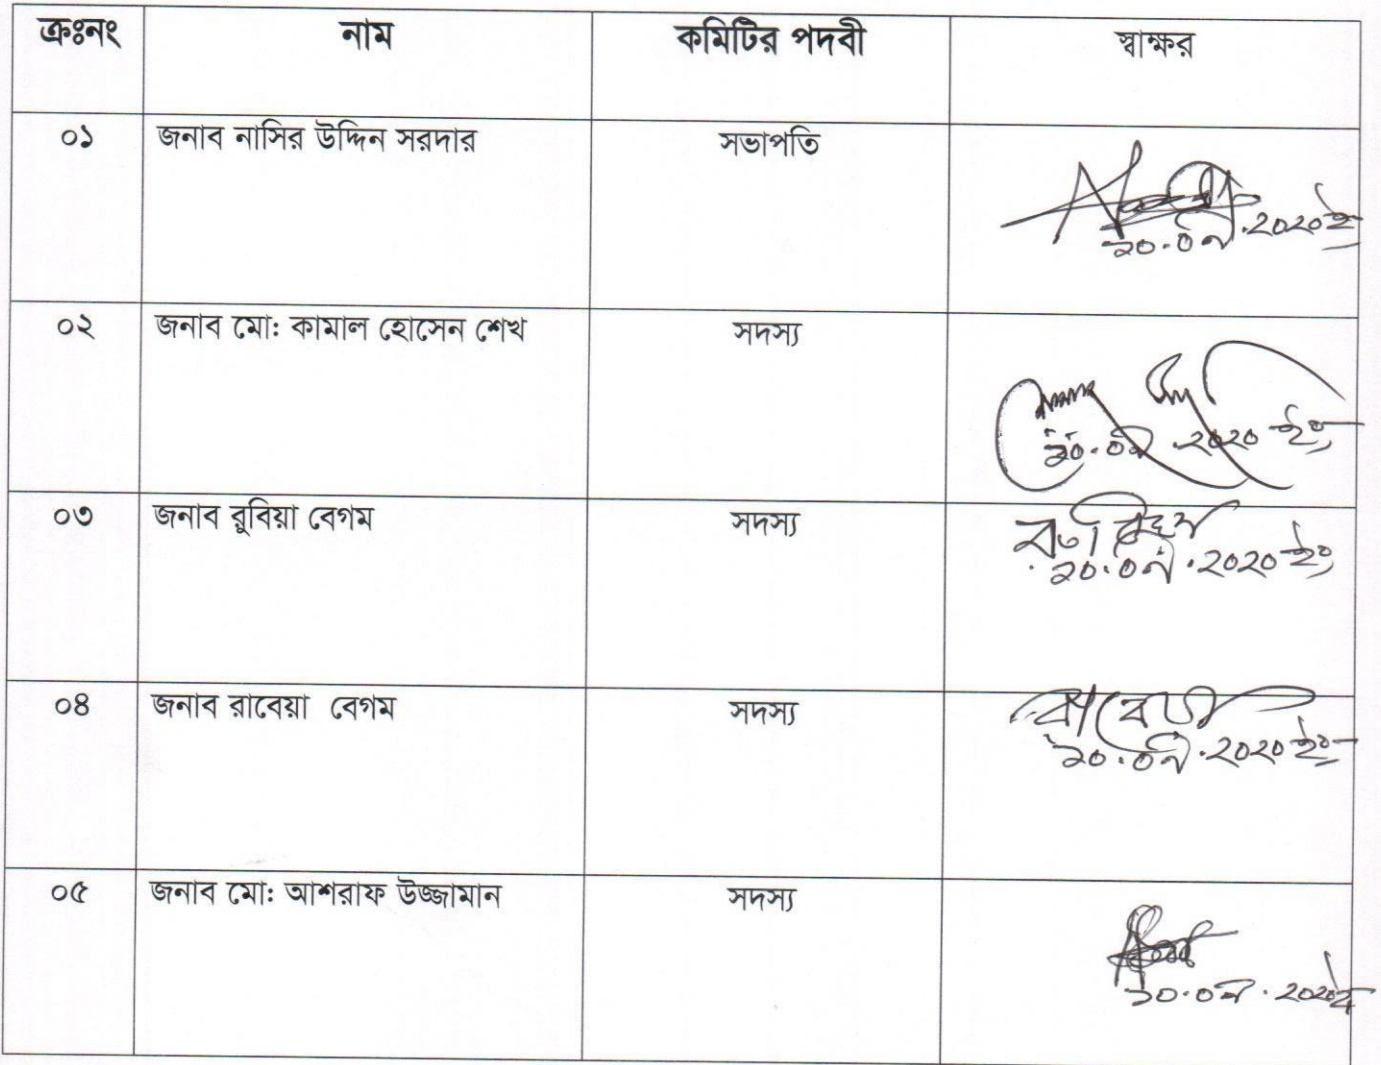 ক্রঃনং নাম কমিটির পদবী স্বাক্ষর
০১ জনাব নাসির উদ্দিন সরদার সভাপতি
২০২০ ইং
০২ জনাব মো: কামাল হোসেন শেখ সদস্য
২০২০ ইং
০৩ জনাব রুবিয়া বেগম সদস্য
২০২০ ইং
০৪ জনাব রাবেয়া বেগম সদস্য
রাবেয়া
২০২০ ইং
০৫ জনাব মো: আশরাফ উজ্জামান সদস্য
২০২০ইং